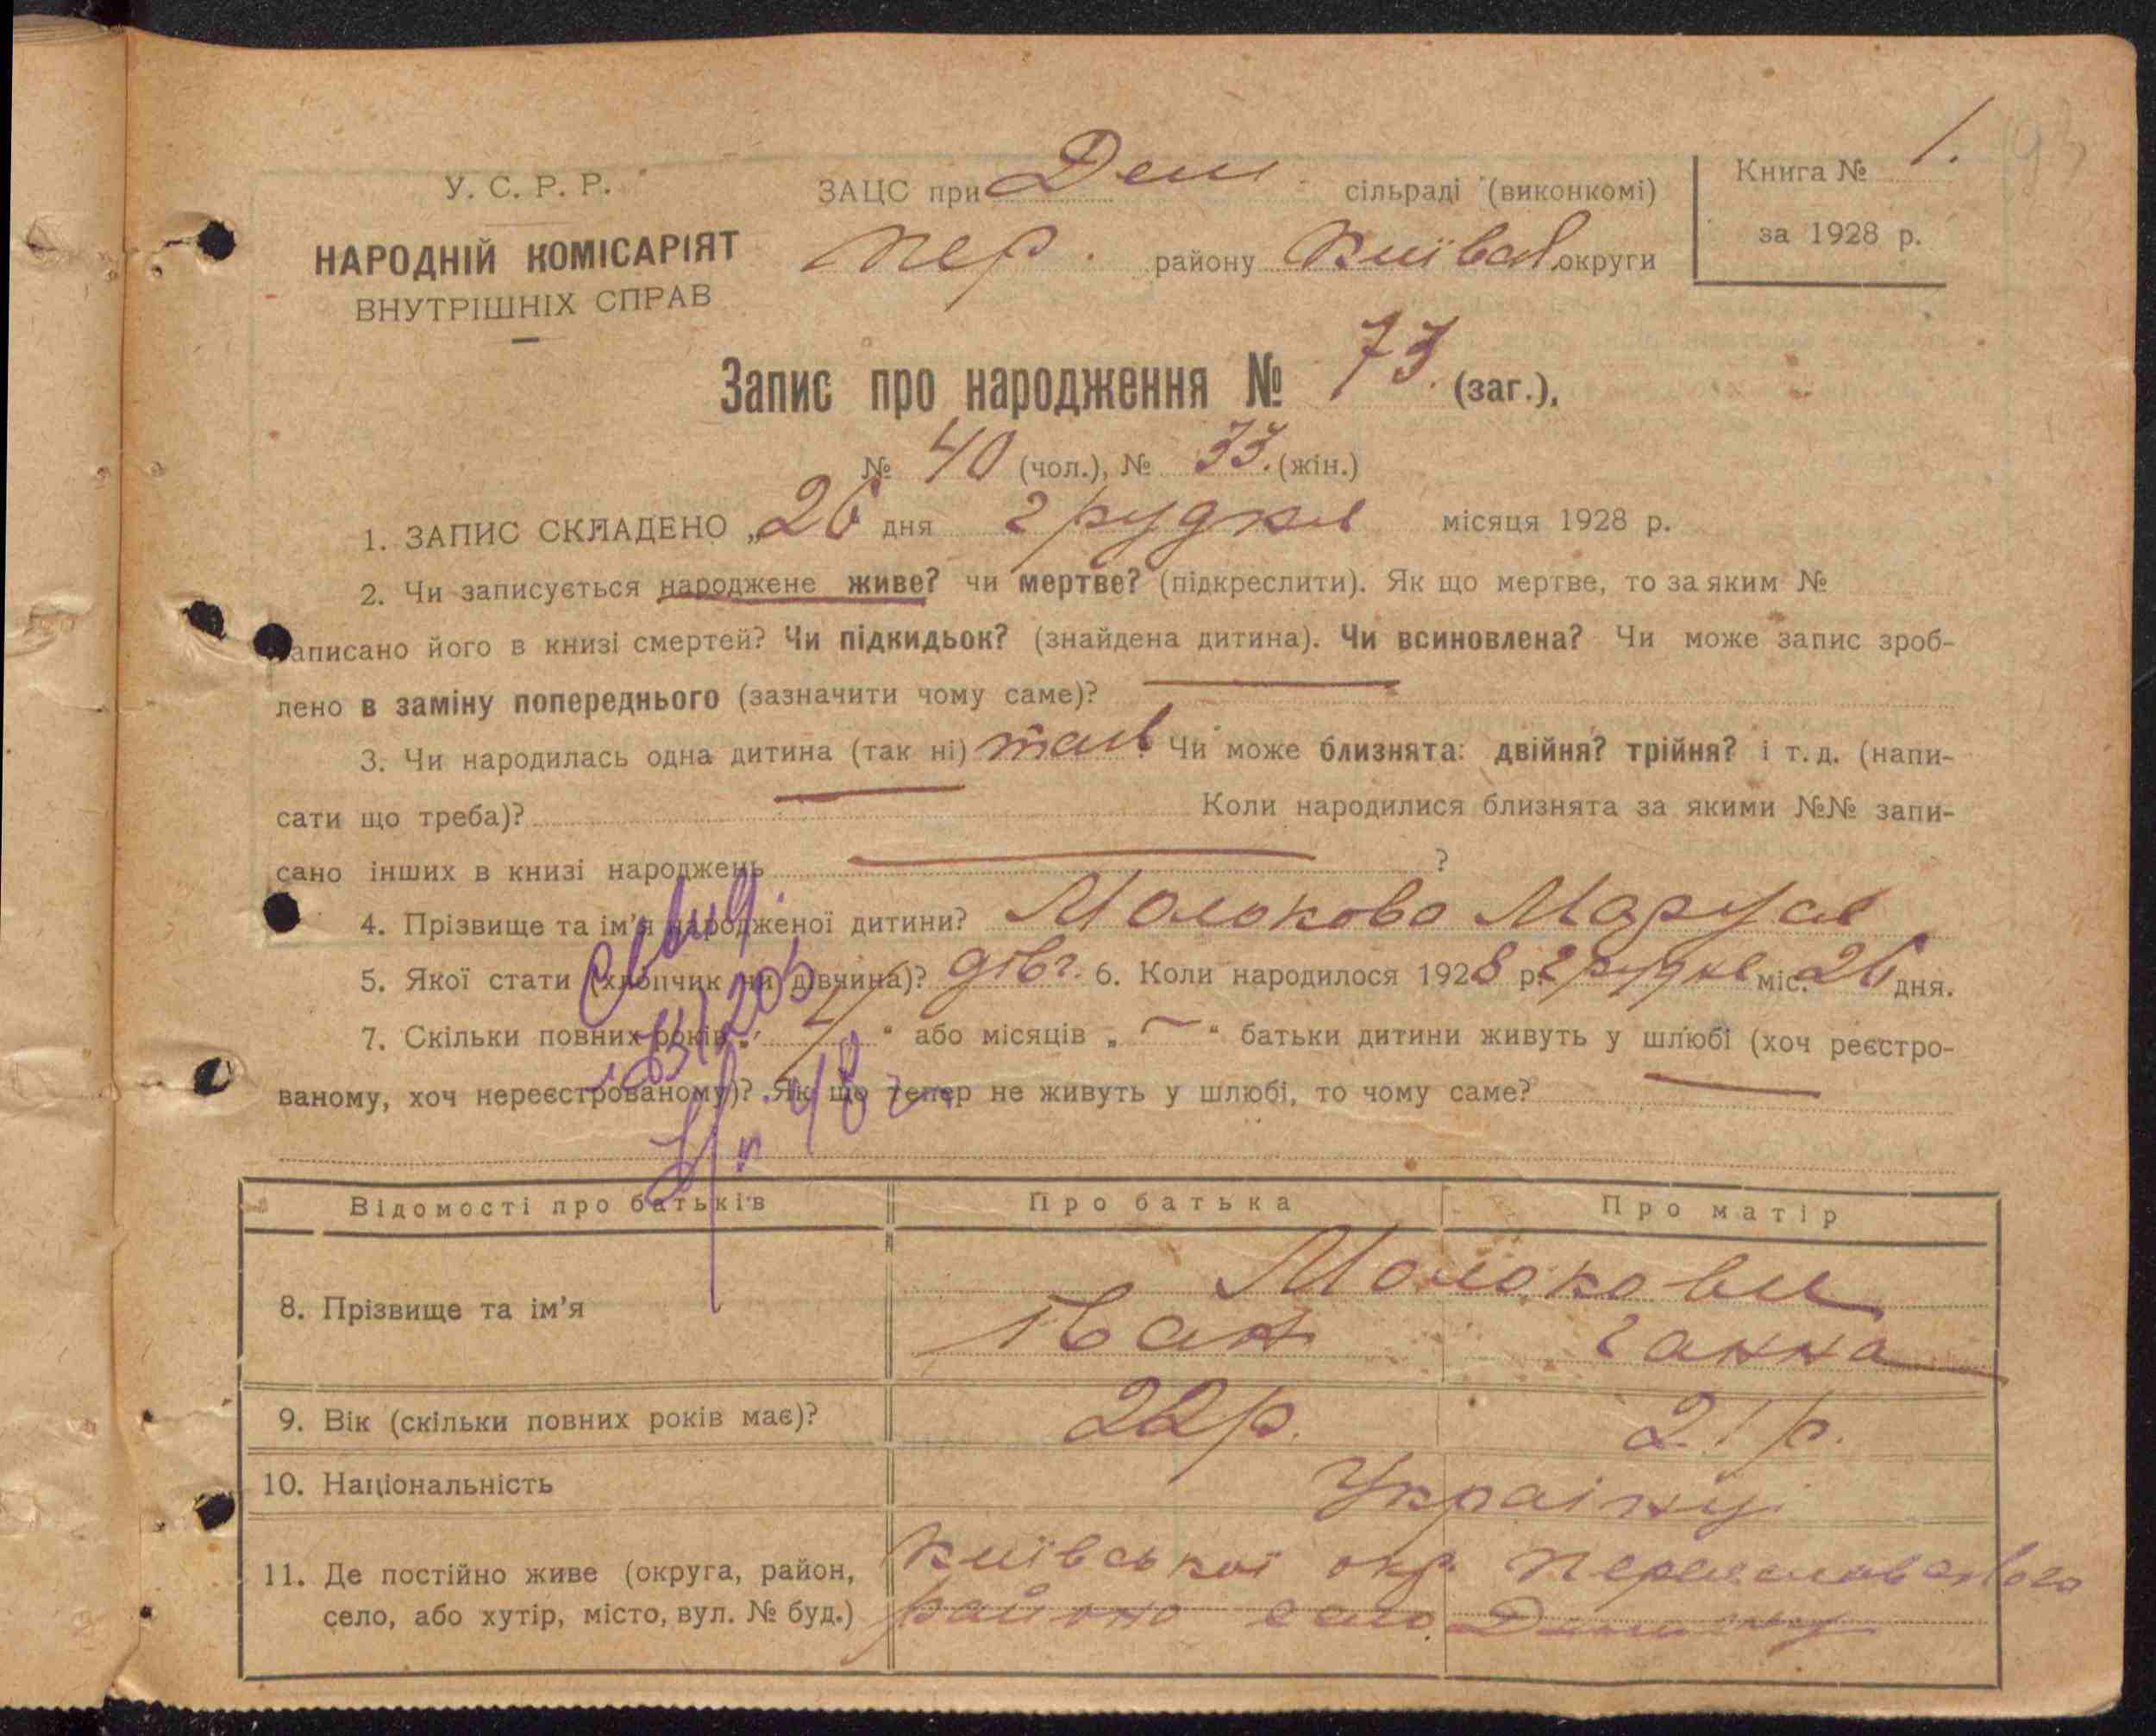 У. С. Р. Р.
НАРОДНІЙ КОМІСАРІЯТ
ВНУТРІШНІХ СПРАВ
ЗАЦС при Дем сільраді (виконкомі)
Пер. району Київськ округи
Книга № 1.
за 1928 р.
93
Запис про народження № 73. (заг.).
№ 40 (чол.), № 33. (жін.)
1. ЗАПИС СКЛАДЕНО „26 дня грудня місяця 1928 р.
2. Чи записується народжене живе? чи мертве? (підкреслити). Як що мертве, то за яким №
аписано його в книзі смертей? Чи підкидьок? (знайдена дитина). Чи всиновлена? Чи може запис зроб-
лено в заміну попереднього (зазначити чому саме)?
3. Чи народилась одна дитина (так ні) так Чи може близнята: двійня? трійня? і т. д. (напи-
сати що треба)? Коли народилися близнята за якими №№ запи-
сано інших в книзі народжень ?
4. Прізвище та ім'я народженої дитини? Молокова Маруся
5. Якої стати (хлопчик чи дівчина)? дівч. 6. Коли народилося 1928 р. грудня міс. 26 дня.
7. Скільки повних років „ 4 " або місяців „ — " батьки дитини живуть у шлюбі (хоч реєстро-
ваному, хоч нереєстрованому)? Як що тепер не живуть у шлюбі, то чому саме?
48 г.
Відомості про батьків Про батька Про матір
8. Прізвище та ім'я Молокови
Іван Ганна
9. Вік (скільки повних років має)? 22 р. 21 р.
10. Національність Українці
11. Де постійно живе (округа, район, Київської окр. Переяславського
село, або хутір, місто, вул. № буд.) району село